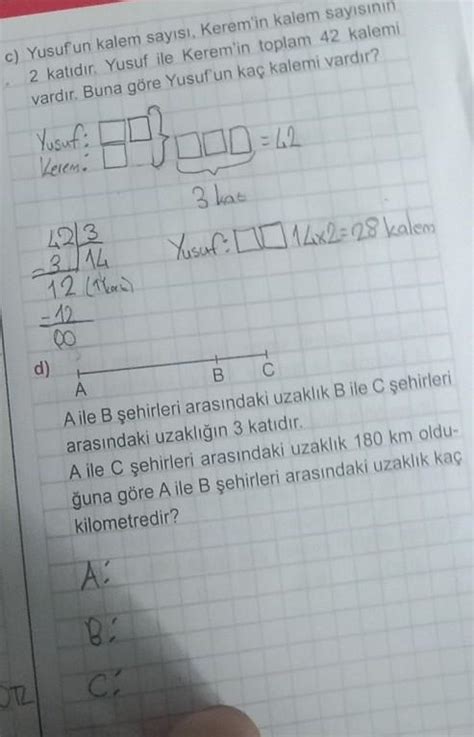 c) Yusuf'un kalem sayısı, Kerem'in kalem sayısının
2 katıdır. Yusuf ile Kerem'in toplam 42 kalemi
vardır. Buna göre Yusuf'un kaç kalemi vardır?
Yusuf:
Kerem:
= 42
3 kat
42 3
- 3 14
12 (1 katı)
- 12
00
Yusuf: 14x2=28 kalem
d)
A B C
A ile B şehirleri arasındaki uzaklık B ile C şehirleri
arasındaki uzaklığın 3 katıdır.
A ile C şehirleri arasındaki uzaklık 180 km oldu-
ğuna göre A ile B şehirleri arasındaki uzaklık kaç
kilometredir?
A:
B:
C: